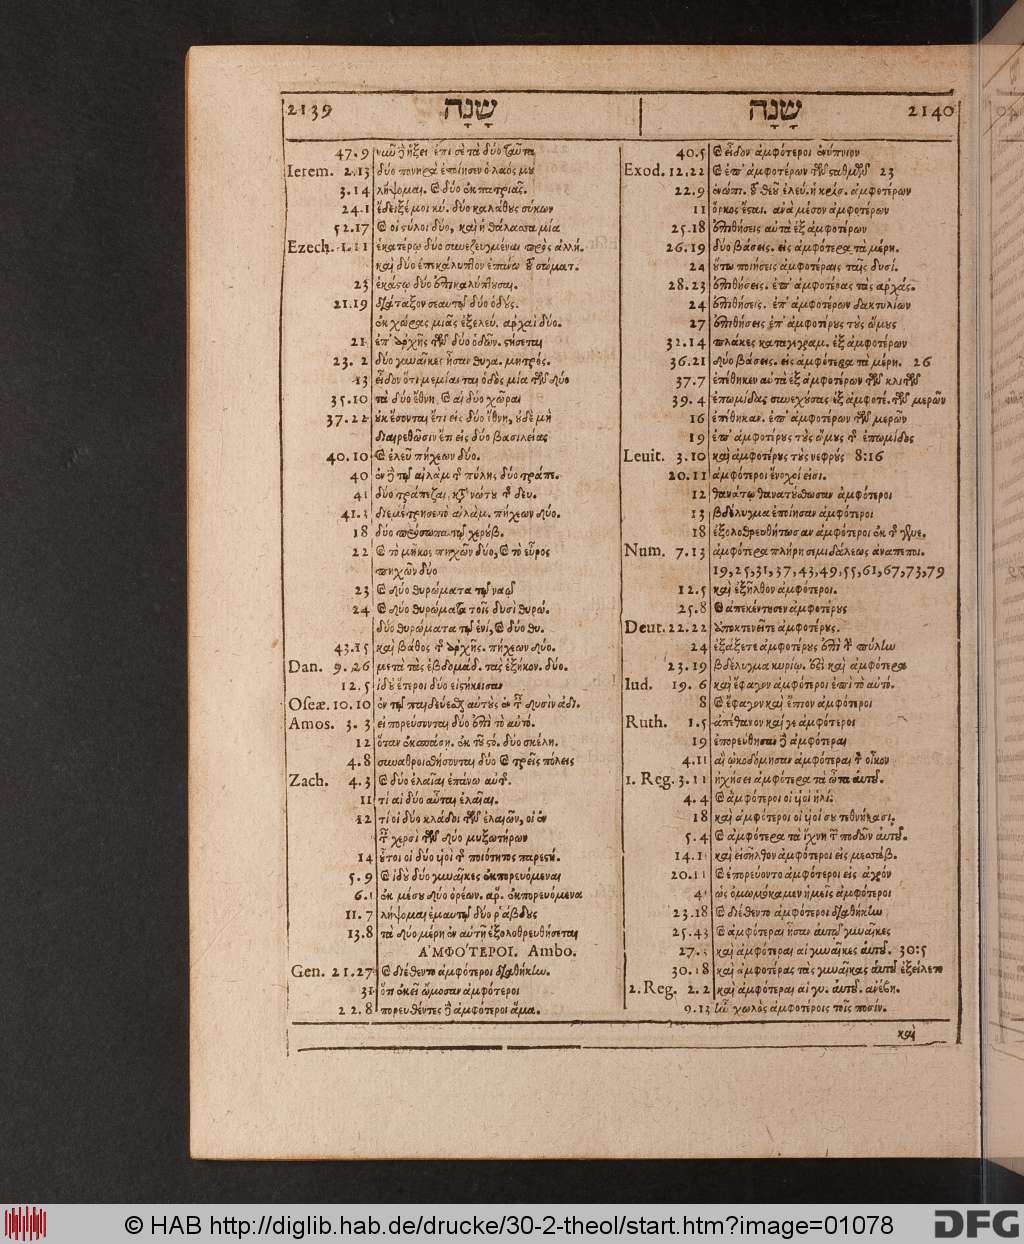 2139 שָׁנָה
47.9 νιῶ ἥξει ἐπὶ σὲ τὰ δύο ταῦτα
Ierem. 2.13 δύο πονηρὰ ἐποίησεν ὁ λαός μȣ
3.14 λήψομαι. δύο ἐκ πατριᾶς.
24.1 ἔδειξέ μοι κύ. δύο καλάθȣς σύκων
52.17 οἱ στύλοι δύο, καὶ ἡ θάλασσα μία
Ezech. 1.11 ἑκατέρῳ δύο συνεζευγμέναι πρὸς ἀλλή.
καὶ δύο ἐπεκάλυπτον ἐπάνω τȣ͂ σώματ.
23 ἑκάστῳ δύο ἐπικαλύπτȣσαι.
21.19 διάταξον σεαυτῷ δύο ὁδȣ́ς.
ἐκ χώρας μιᾶς ἐξελεύ. ἀρχαὶ δύο.
21 ἐπ' ἀρχῆς τῶν δύο ὁδῶν. στήσεται
23. 2 δύο γυναῖκες ἦσαν θυγα. μητρός.
13 εἶδον ὅτι μεμίανται ὁδὸς μία τῶν δύο
35.10 τὰ δύο ἔθνη αἱ δύο χῶραι
37.22 ȣ̓κ ἔσονται ἔτι εἰς δύο ἔθνη, ȣ̓δὲ μὴ
διαιρεθῶσιν ἔτι εἰς δύο βασιλείας
40.10 ἐλεῦ πήχεων δύο.
40 ἐν τῷ αἰλὰμ τ͂ πύλης δύο τράπε.
41 δύο τράπεζαι κτ͂ νώτȣ τ͂ δευ.
41.3 διεμέτρησε τὸ αἰλάμ. πήχεων δύο.
18 δύο πρόσωπα τῷ χερȣ́β.
22 τὸ μῆκος πηχῶν δύο, τὸ εὖρος
πηχῶν δύο
23 δύο θυρώματα τῷ ναῷ
24 δύο θυρώματα τοῖς δυσὶ θυρώ.
δύο θυρώματα τῷ ἑνί, δύο θυ.
43.15 καὶ βάθος τ͂ ἀρχῆς. πήχεων δύο.
Dan. 9.26 μετὰ τὰς ἑβδομάδ. τὰς ἑξήκον. δύο.
12.5 ἰδȣ̀ ἕτεροι δύο εἱστήκεισαν
Oseæ. 10.10 ἐν τῷ παιδεύεσθ αὐτȣ̀ς ἐν τ͂ δυσὶν ἀδι.
Amos. 3.3 εἰ πορεύσονται δύο ἐπὶ τὸ αὐτό.
12 ὅταν ἐκσπάσῃ. ἐκ τȣ͂ στό. δύο σκέλη.
4.8 συναθροισθήσονται δύο τρεῖς πόλεις
Zach. 4.3 δύο ἐλαῖαι ἐπάνω αὐτ͂.
11 τί αἱ δύο αὗται ἐλαῖαι.
12 τί οἱ δύο κλάδοι τῶν ἐλαιῶν, οἱ ἐν
τ͂ χερσὶ τῶν δύο μυξωτήρων
14 ȣ͗τοι οἱ δύο ὑοὶ τ͂ πιότητος παρεστή.
5.9 ἰδȣ̀ δύο γυναῖκες ἐκπορευόμεναι
6.1 ἐκ μέσȣ δύο ὀρέων. ἅρ. ἐκπορευόμενα
11.7 λήψομαι ἐμαυτῷ δύο ῥάβδȣς
13.8 τὰ δύο μέρη ἐν αὐτῇ ἐξολοθρευθήσεται
ἈΜΦΌΤΕΡΟΙ. Ambo.
Gen. 21.27 διέθεντο ἀμφότεροι διαθήκην.
31 ὅτι ἐκεῖ ὤμοσαν ἀμφότεροι
22.8 πορευθέντες ἀμφότεροι ἅμα.
שָׁנָה 2140
40.5 εἶδον ἀμφότεροι ἐνύπνιον
Exod. 12.22 ἐπ' ἀμφοτέρων τῶν σταθμῶν 23
22.9 ἐνώπι. τȣ͂ θεȣ͂ ἐλεύ. ἡ κρίσ. ἀμφοτέρων
11 ὅρκος ἔσται. ἀνὰ μέσον ἀμφοτέρων
25.18 ἐπιθήσεις αὐτὰ ἐξ ἀμφοτέρων
26.19 δύο βάσεις. εἰς ἀμφότερα τὰ μέρη.
24 ȣ̔́τω ποιήσεις ἀμφοτέραις ταῖς δυσί.
28.23 ἐπιθήσεις. ἐπ' ἀμφοτέρας τὰς ἀρχάς.
24 ἐπιθήσεις. ἐπ' ἀμφοτέρων δακτυλίων
27 ἐπιθήσεις ἐπ' ἀμφοτέρȣς τȣ̀ς ὤμȣς
32.14 πλάκες καταγεγραμ. ἐξ ἀμφοτέρων
36.21 δύο βάσεις. εἰς ἀμφότερα τὰ μέρη. 26
37.7 ἐπέθηκεν αὐτὰ ἐξ ἀμφοτέρων τῶν κλιτῶν
39.4 ἐπωμίδας συνεχȣ́σας ἐξ ἀμφοτέ. τῶν μερῶν
16 ἐπέθηκαν. ἐπ' ἀμφοτέρων τῶν μερῶν
19 ἐπ' ἀμφοτέρȣς τȣ̀ς ὤμȣς τ͂ ἐπωμίδος
Leuit. 3.10 καὶ ἀμφοτέρȣς τȣ̀ς νεφρȣ́ς 8:16
20.11 ἀμφότεροι ἔνοχοί εἰσι.
12 θανάτῳ θανατȣ́σθωσαν ἀμφότεροι
13 βδέλυγμα ἐποίησαν ἀμφότεροι
18 ἐξολοθρευθήτωσαν ἀμφότεροι ἐκ τ͂ γένε.
Num. 7.13 ἀμφότερα πλήρη σεμιδάλεως ἀναπεποι.
19,25,31,37,43,49,55,61,67,73,79
12.5 καὶ ἐξῆλθον ἀμφότεροι.
25.8 ἀπεκέντησεν ἀμφοτέρȣς
Deut. 22.22 ἀποκτενεῖτε ἀμφοτέρȣς.
24 ἐξάξετε ἀμφοτέρȣς ἐπὶ τ͂ πύλην
23.19 βδέλυγμα κυρίῳ. ἐστι καὶ ἀμφότερα
Iud. 19.6 καὶ ἔφαγον ἀμφότεροι ἐπὶ τὸ αὐτό.
8 ἔφαγον καὶ ἔπιον ἀμφότεροι
Ruth. 1.5 ἀπέθανον καί γε ἀμφότεροι
19 ἐπορεύθησαν ἀμφότεραι
4.11 αἳ ᾠκοδόμησαν ἀμφότεραι τ͂ οἶκον
1. Reg. 3.11 ἠχήσει ἀμφότερα τὰ ὦτα αὐτȣ͂.
4.4 ἀμφότεροι οἱ ὑοὶ ἡλί.
18 καὶ ἀμφότεροι οἱ ὑοί σȣ τεθνήκασι.
5.4 ἀμφότερα τὰ ἴχνη τ͂ ποδῶν αὐτȣ͂.
14.1 καὶ εἰσῆλθον ἀμφότεροι εἰς μεσσάβ.
20.11 ἐπορεύοντο ἀμφότεροι εἰς ἀγρόν
4 ὡς ὀμωμόκαμεν ἡμεῖς ἀμφότεροι
23.18 διέθεντο ἀμφότεροι διαθήκην
25.43 ἀμφότεραι ἦσαν αὐτῷ γυναῖκες
27. καὶ ἀμφότεραι αἱ γυναῖκες αὐτȣ͂. 30:5
30.18 καὶ ἀμφοτέρας τὰς γυναῖκας αὐτȣ͂ ἐξείλετο
2. Reg. 2.2 καὶ ἀμφότεραι αἱ γυ. αὐτȣ͂. ἀνέβη.
9.13 ἦν χωλὸς ἀμφοτέροις τοῖς ποσίν.
καὶ
© HAB http://diglib.hab.de/drucke/30-2-theol/start.htm?image=01078
DFG